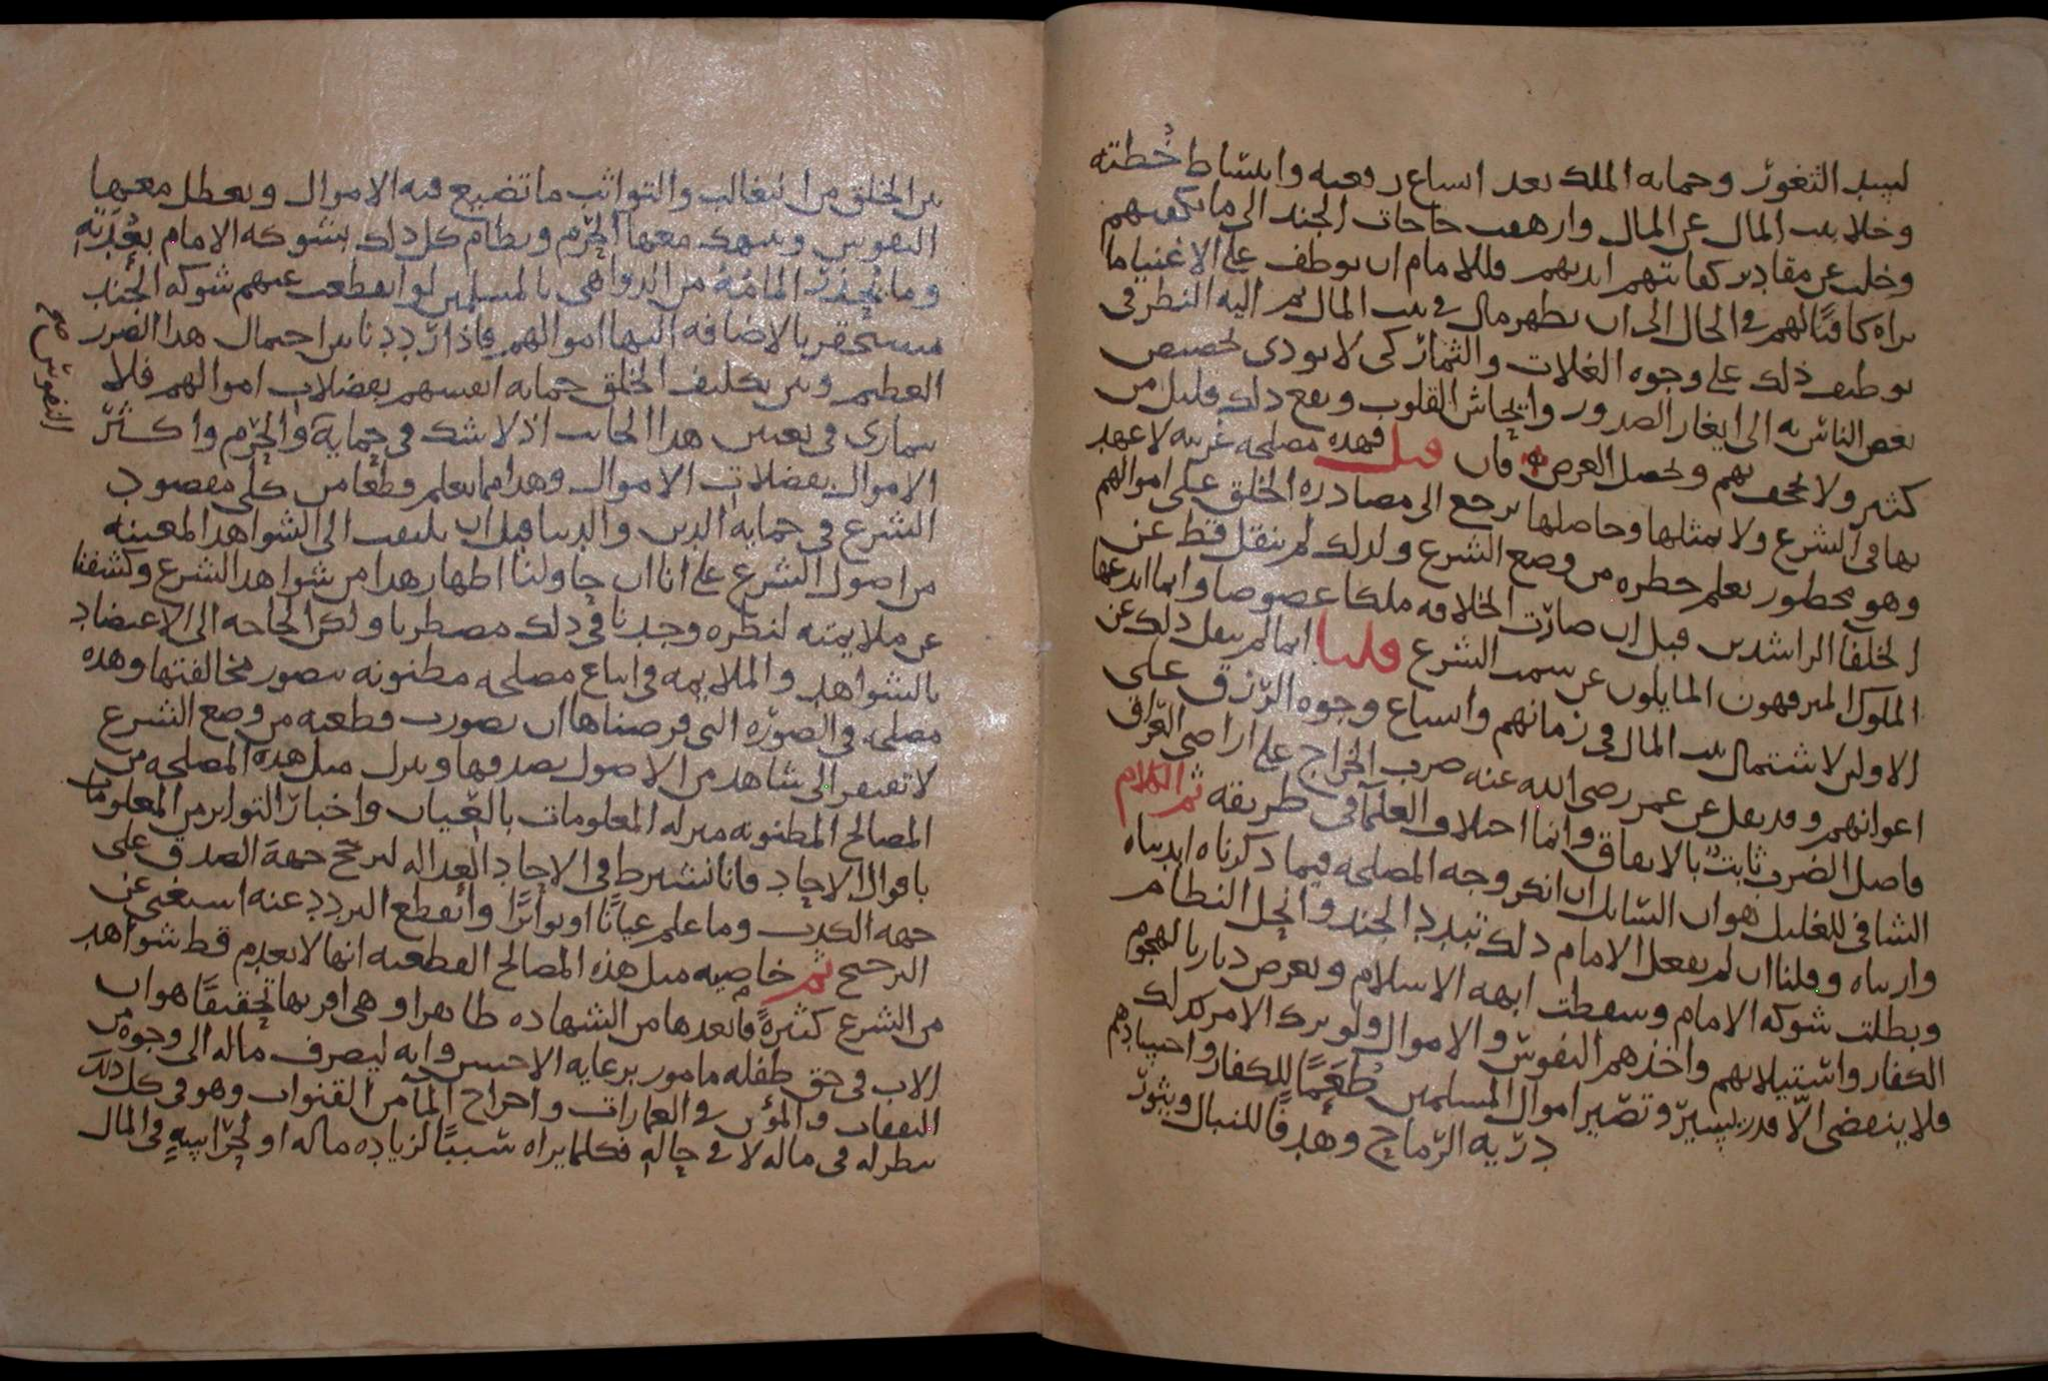 لسد الثغور وحمايه الملك بعد اتساع رقعته وانبساط خُطته
وخلا بيت المال عن المال وارهقت حاجات الجند الى ما يكفيهم
وخلت عن مقادير كفايتهم ايديهم فللامام ان يوظف على الاغنيا ما
يراه كافيًا لهم في الحال الى ان يظهر مال في بيت المال ثم اليه النظر في
توظيف ذلك على وجوه الغلات والثمار كى لا يودى تخصيص
بعض الناس به الى ايغار الصدور وايحاش القلوب ويقع ذلك قليل من
كثير ولا يجحف بهم ويحصل الغرض به فان قيل فهده مصلحه غريبه لا عهد
بها في الشرع ولا بمثلها وحاصلها يرجع الى مصادره الخلق على اموالهم
وهو محظور يعلم حظره من وضع الشرع ولدلك لم ينقل قط عن
الخلفا الراشدين قبل ان صارت الخلافه ملكا عضوضا وانما ابدعها
الملوك المترفهون المايلون عن سمت الشرع قلنا انما لم ينقل ذلك عن
الاولين لاشتمال بيت المال في زمانهم واتساع وجوه الرزق على
اعوانهم وقد نقل عن عمر رضى الله عنه ضرب الخراج على اراضى العراق
فاصل الضرب ثابت بالاتفاق وانما اختلاف العلمآ في طريقه ثم الكلام
الشافى للغليل هو ان السايل ان انكر وجه المصلحه فيما ذكرناه ابديناه
واريناه وقلنا ان لم يفعل الامام ذلك تبدد الجند وانحل النظام
وبطلت شوكه الامام وسقطت ابهه الاسلام وتعرض ديارنا لهجوم
الكفار واستيلايهم واخذهم النفوس والاموال ولو ترك الامر كذلك
فلا ينقضى الّا قدر يسير وتصير اموال المسلمين طُعَمًا للكفار واجسادهم
دريه الرماح وهدفًا للنبال ويثور
بين الخلق من التغالب والتواثب ما تضيع فيه الاموال وتعطل معها
النفوس وتنهك معها الحُرَم ونظام كل ذلك بشوكه الامام بعُدَّته
وما نحذر المامَّهُ من الدواهى بالمسلمين لو انقطعت عنهم شوكه الجند
يستحقر بالاضافه اليها اموالهم فاذا رددنا بين احتمال هذا الضرر
العظيم وبين تكليف الخلق حمايه انفسهم بفضلات اموالهم فلا
يتمارى في تعيين هذا الجانب اذ لا شك في حماية والحُرَم واكثر
النفوس صح
الاموال بفضلات الاموال وهذا مما يعلم قطعا من كلى مقصود
الشرع في حمايه الدين والدنيا قبل ان يلتفت الى الشواهد المعينه
من اصول الشرع على انا ان حاولنا اظهار هذا من شواهد الشرع وكشفنا
عن ملايمته لنظره وجدنا في ذلك مضطربا ولكن الحاجه الى الاعتضاد
بالشواهد والملايمه في اتباع مصلحه مظنونه يتصور مخالفتها وهذه
مصلحه في الصوره التي فرضناها ان تصورت قطعيه من وضع الشرع
لا تفتقر الى شاهد من الاصول يصدقها وينزل مثل هذه المصلحه من
المصالح المظنونه منزله المعلومات بالعيان واخبار التواتر من المعلومات
باقوال الاحاد فانا نشترط في الاحاد العداله لترجح جهة الصدق على
جهه الكذب وما علم عيانًا او تواترًا وانقطع التردد عنه استغنى عن
الترجيح ثم خاصيه مثل هذه المصالح القطعيه انها لا يعدم قط شواهد
من الشرع كثيرةً فابعدها من الشهاده ظاهرا وهى اقربها تحقيقًا هو ان
الاب في حق طفله مامور برعايه الاحسن وانه ليصرف ماله الى وجوه من
النفقات والمؤن في العمارات واخراج المآ من القنوات وهو في كل ذلك
ينظر له في ماله لا في حاله فكلما يراه سببًا لزياده ماله او لحراسته في المال